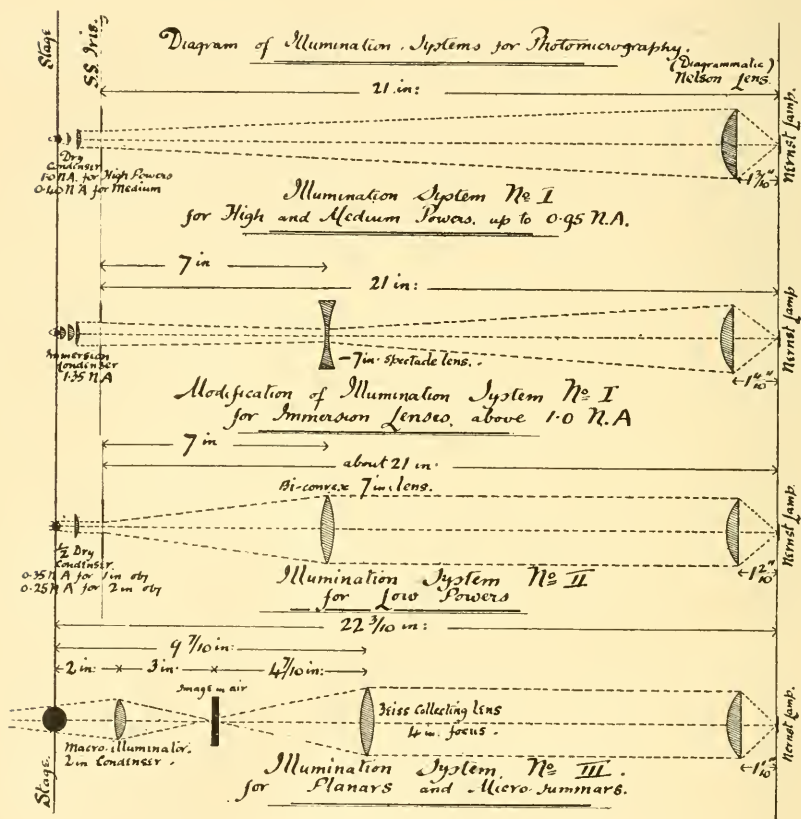 Diagram of Illumination Systems for Photomicrography.
Stage
SS Iris.
(Diagrammatic)
Nelson Lens.
21 in:
Nernst Lamp.
Dry
Condenser
1·0 N.A. for High Powers
0·40 N A for Medium
1 3/10"
Illumination System No I
for High and Medium Powers. up to 0·95 N.A.
7 in
21 in:
Nernst Lamp
Immersion
Condenser
1·35 N A
–7 in. spectacle lens.
1 4/10"
Modification of Illumination System No I
for Immersion Lenses, above 1·0 N.A
7 in
about 21 in.
Bi-convex 7 in: lens.
Nernst Lamp
1/2 Dry
Condenser.
0·35 N A for 1 in obj
0·25 N A for 2 in obj
1 2/10"
Illumination System No II
for Low Powers
22 3/10 in:
9 7/10 in:
2 in: 3 in. 4 7/10 in:
Image in air
Zeiss Collecting Lens
4 in. focus.
Nernst Lamp.
Macro-illuminator.
2 in Condenser.
Stage.
Illumination System. No III.
for Planars and Micro-summars.